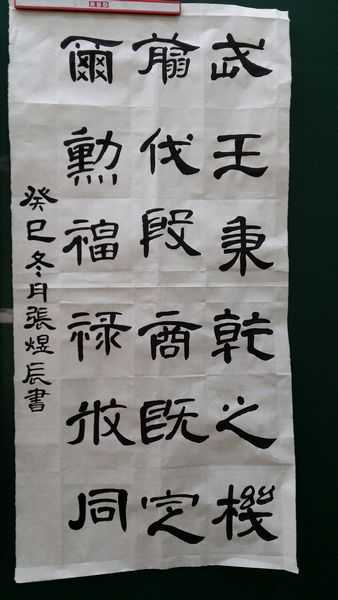 武王秉乾之機
翦伐殷商既定
爾勳福禄攸同
癸巳冬月張煜辰書